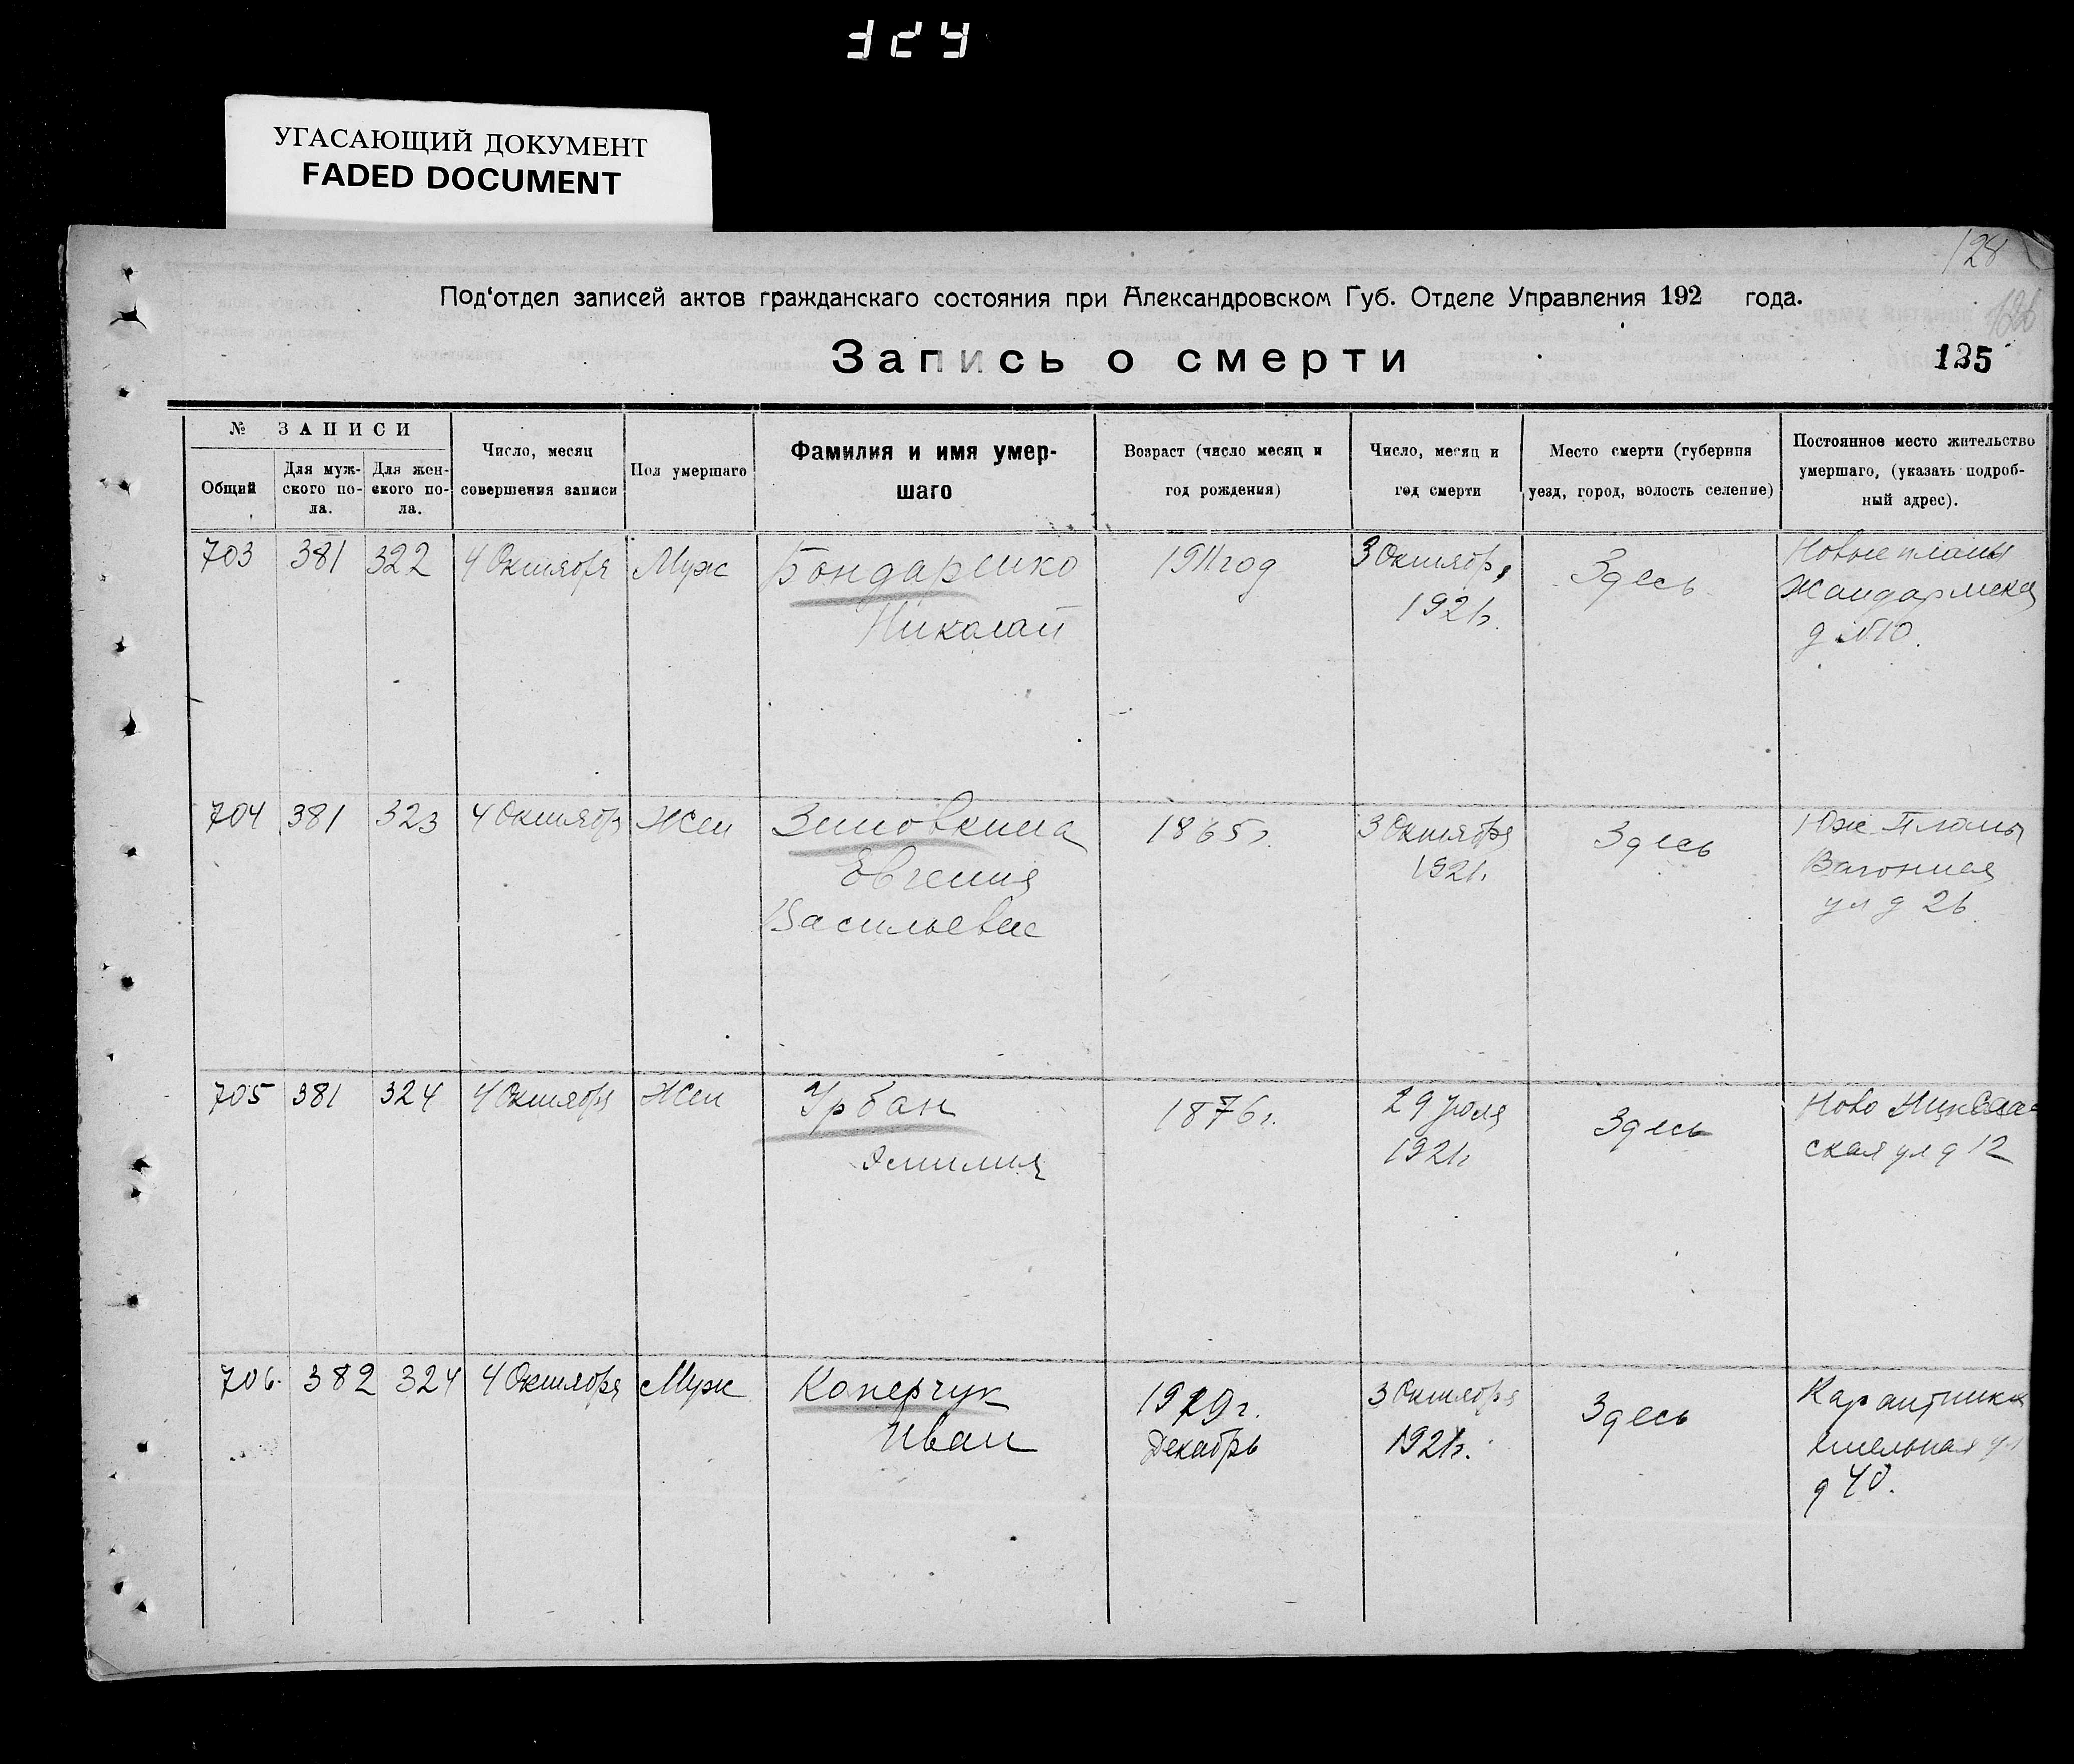 324
УГАСАЮЩИЙ ДОКУМЕНТ
FADED DOCUMENT
128
Под'отдел записей актов гражданскаго состояния при Александровском Губ. Отделе Управления 192 года.
Запись о смерти
135
№ ЗАПИСИ
Общий
Для муж-
ского по-
ла.
Для жен-
ского по-
ла.
Число, месяц
совершения записи
Пол умершаго
Фамилия и имя умер-
шаго
Возраст (число месяц и
год рождения)
Число, месяц и
год смерти
Место смерти (губерния
уезд, город, волость селение)
Постоянное место жительство
умершаго, (указать подроб-
ный адрес).
703 381 322 4 Октября Муж
Бондаренко
Николай
1911 год
3 Октябр,
1921г.
Здесь
Новые планы
Жандармска
д №10.
704 381 323 4 Октябр Жен
Зиновкина
Евгения
Васильевне
1865 г.
3 Октября
1921г.
Здесь
Юж Планы
Вагонная
ул д 26
705 381 324 4 Октября Жен
Урбан
Эмилия
1876 г.
29 Июля
1921г
Здесь
Ново
ская ул д 12
706. 382 324 4 Октября Муж
Коперчук
Иван
1919 г.
Декабрь
3 Октября
1921г.
Здесь
ул
д 40.